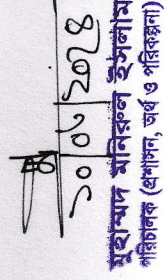 ১০|০৬|২০২৪
মুহাম্মদ মনিরুল ইসলাম
পরিচালক (প্রশাসন, অর্থ ও পরিকল্পনা)